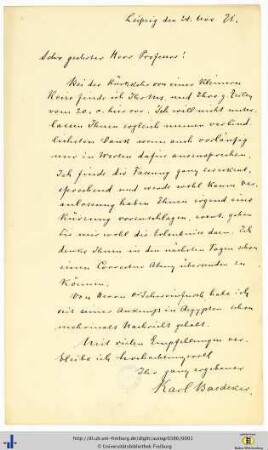 Leipzig den 21. Nov 76.
Sehr geehrter Herr Professor!
Bei der Rückkehr von einer kleinern
Reise finde ich Ihr Ms. und Ihre g. Zeilen
vom 20. c. hier vor. Ich will nicht unter-
lassen Ihnen sogleich meinen verbind-
lichsten Dank wenn auch vorläufig
nur in Worten dafür auszusprechen.
Ich finde die Fassung ganz
sprechend und werde wohl kaum Ver-
anlassung haben Ihnen irgend eine
Kürzung vorzuschlagen, sonst geben
Sie mir wohl die Erlaubniss dazu. Ich
denke Ihnen in den nächsten Tagen schon
einen Correctur Abzug übersenden zu
können.
Von Herrn Dr Schweinfurth habe ich
seit seiner Ankunft in Aegypten schon
mehrmals Nachricht gehabt.
Mit vielen Empfehlungen ver-
bleibe ich hochachtungsvoll
Ihr ganz ergebener
Karl Baedeker.
http://dl.ub.uni-freiburg.de/diglit/autogr0380/0001
© Universitätsbibliothek Freiburg